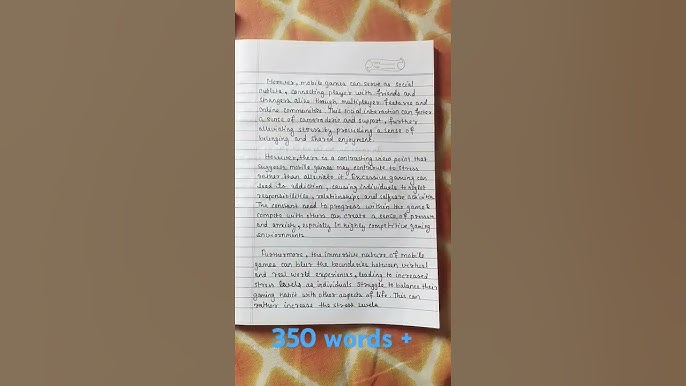 Morever, mobile games can serve as social
outlets, connecting player with friends and
strangers alike though multiplayer features and
online communities. This social interaction can foster
a sense of camaraderie and support, further
alleviating stress by providing a sense of
belonging and shared enjoyment.
However, there is a contrasting view point that
suggests mobile games may contribute to stress
rather than alleviate it. Excessive gaming can
lead to addiction, causing individuals to neglect
responsibilities, relationships and selfcare activities
The constant need to progress within the game &
compete with others can create a sense of pressure
and anxiety, espcially in highly competitive gaming
enviornments
Furthermore, the immersive nature of mobile
games can blur the boundaries between virtual
and real world experiences, leading to increased
stress levels as individuals struggle to balance their
gaming habit with other aspects of life. This can
rather increase the stress levels
350 words +